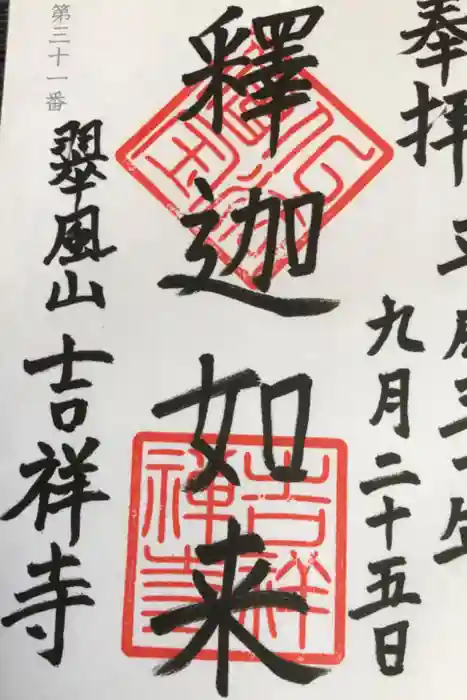 奉拝 平成三十年
九月二十五日
釋迦如来
第三十一番
翠風山 吉祥寺
吉祥
禅寺